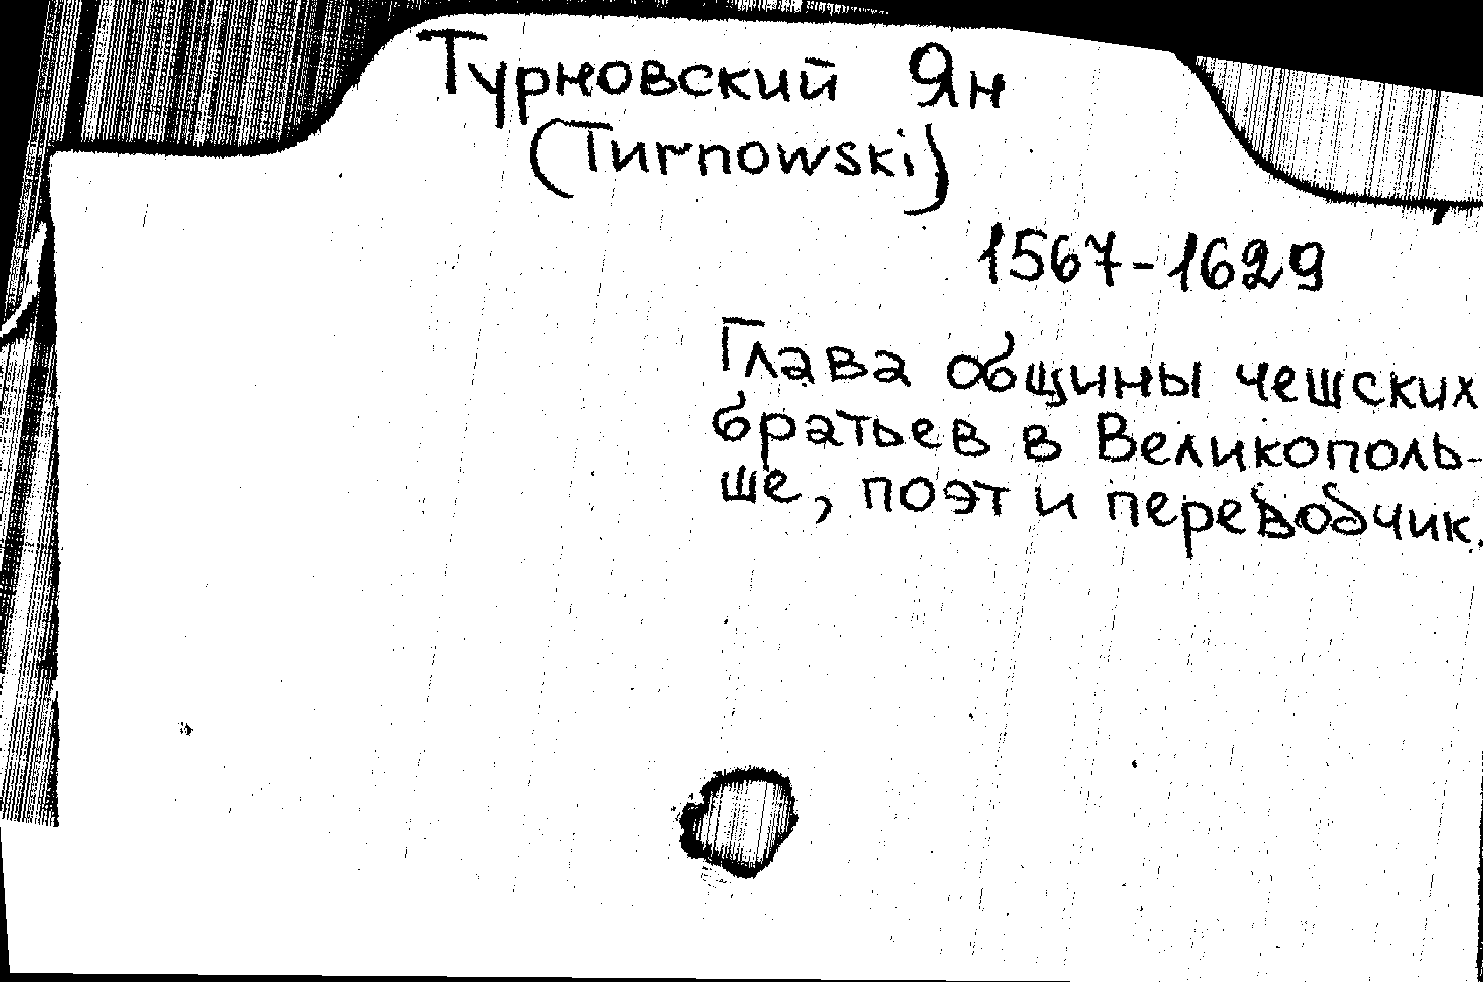 Турновский Ян
(Turnowski)
1567-1629
Глава общины чешских
братьев в Великополь-
ше, поэт и переводчик.